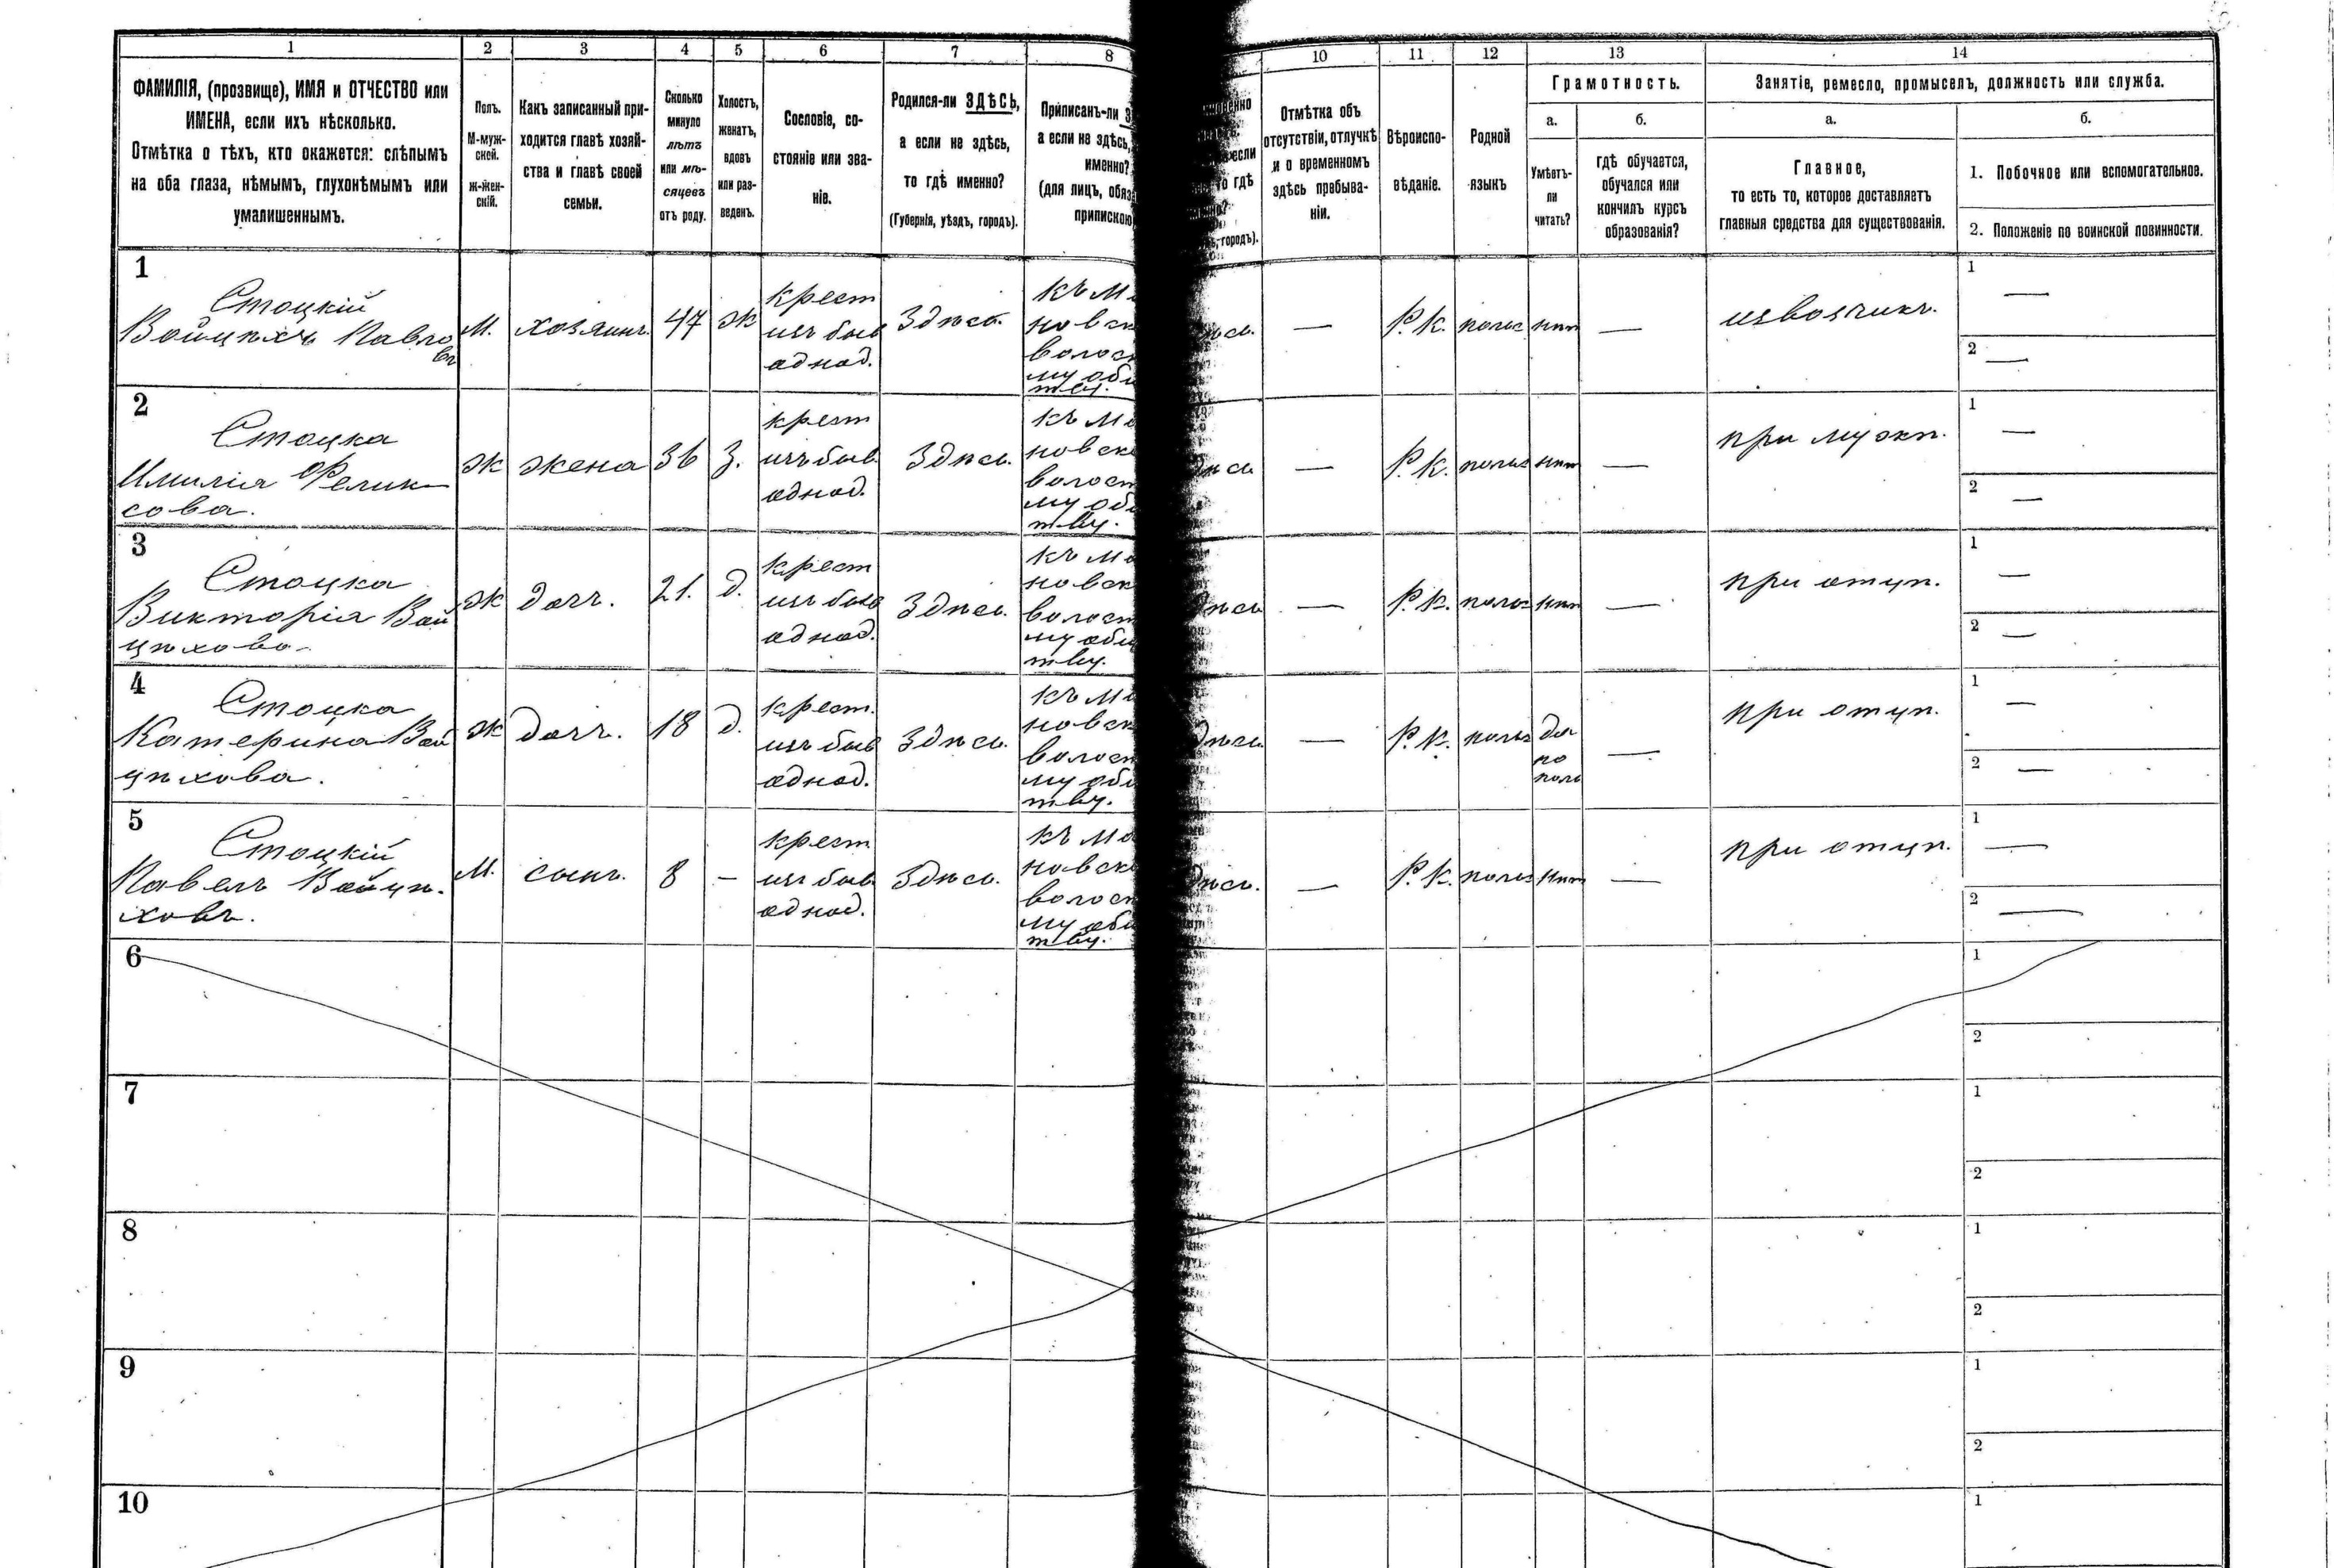 1 2 3 4 5 6 7 8 10 11 12 13 14
ФАМИЛІЯ, (прозвище), ИМЯ и ОТЧЕСТВО или
ИМЕНА, если ихъ нѣсколько.
Отмѣтка о тѣхъ, кто окажется: слѣпымъ
на оба глаза, нѣмымъ, глухонѣмымъ или
умалишеннымъ.
Полъ.
М-муж-
ской.
Ж-жен-
скій.
Какъ записанный при-
ходится главѣ хозяй-
ства и главѣ своей
семьи.
Сколько
минуло
лѣтъ
или мѣ-
сяцевъ
отъ роду.
Холостъ,
женатъ,
вдовъ
или раз-
веденъ.
Сословіе, со-
стояніе или зва-
ніе.
Родился-ли ЗДѢСЬ,
а если не здѣсь,
то гдѣ именно?
(Губернія, уѣздъ, городъ).
Приписанъ-ли З
а если не здѣсь,
именно?
(для лицъ, обяз
припискою
если
то гдѣ
городъ).
Отмѣтка объ
отсутствіи, отлучкѣ
и о временномъ
здѣсь пребыва-
ніи.
Вѣроиспо-
вѣданіе.
Родной
языкъ
Грамотность.
а.
Умѣетъ-
ли
читать?
б.
гдѣ обучается,
обучался или
кончилъ курсъ
образованія?
Занятіе, ремесло, промыселъ, должность или служба.
а.
Главное,
то есть то, которое доставляетъ
главныя средства для существованія.
б.
1. Побочное или вспомогательное.
2. Положеніе по воинской повинности.
1
Стоцкій
Войцѣхъ Павло
въ
М.
хозяинъ.
47
ж
крест
изъ быв
однод.
Здѣсь.
къ М
новск
волос
му об
тву.
ѣсь.
—
Р.К.
польс
нѣт
—
извозчикъ.
1 —
2 —
2
Стоцка
Имилія Фелик-
сова.
ж
жена
36
З.
крест
изъ быв.
однод.
Здѣсь.
къ М
новск
волост
му об
тву.
дѣсь
—
Р.К.
польс
нѣт
—
при мужѣ.
1 —
2 —
3
Стоцка
Викторія Вой
цѣхова.
ж
доч.
21.
д.
крест
изъ быв
однод.
Здѣсь.
къ М
новск
волост
му общ
тву.
дѣсь
—
Р.К.
польс
нѣт
—
при отцѣ.
1 —
2 —
4
Стоцка
Катерина Вой
цѣхова.
ж
доч.
18
д.
крест.
изъ быв
однод.
Здѣсь.
къ М
новск
волост
му об
тву.
дѣсь
—
Р.К.
польс
да
по
поль
—
при отцѣ.
1 —
2 —
5
Стоцкій
Павелъ Войцѣ-
ховъ.
М.
сынъ.
8
—
крест
изъ быв
однод.
Здѣсь.
къ М
новск
волост
му общ
тву.
дѣсь.
—
Р.К.
польс
нѣт
—
при отцѣ.
1 —
2 —
6
1
2
7
1
2
8
1
2
9
1
2
10
1